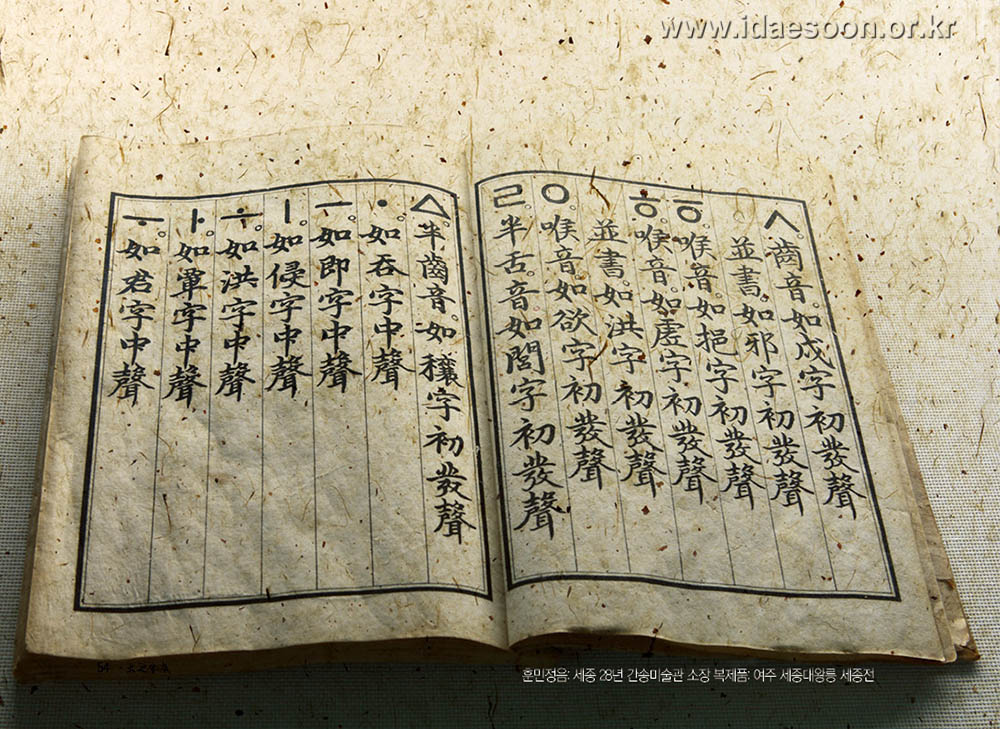 www.idaesoon.or.kr
ㅅ。齒音。如戌字初發聲
並書。如邪字初發聲
ㆆ。喉音。如挹字初發聲
ㅎ。喉音。如虛字初發聲
並書。如洪字初發聲
ㅇ。喉音。如欲字初發聲
ㄹ。半舌音。如閭字初發聲
ㅿ。半齒音。如穰字初發聲
ㆍ。如呑字中聲
ㅡ。如即字中聲
ㅣ。如侵字中聲
ㅗ。如洪字中聲
ㅏ。如覃字中聲
ㅜ。如君字中聲
54
훈민정음: 세종 28년 간송미술관 소장 복제품: 여주 세종대왕릉 세종전